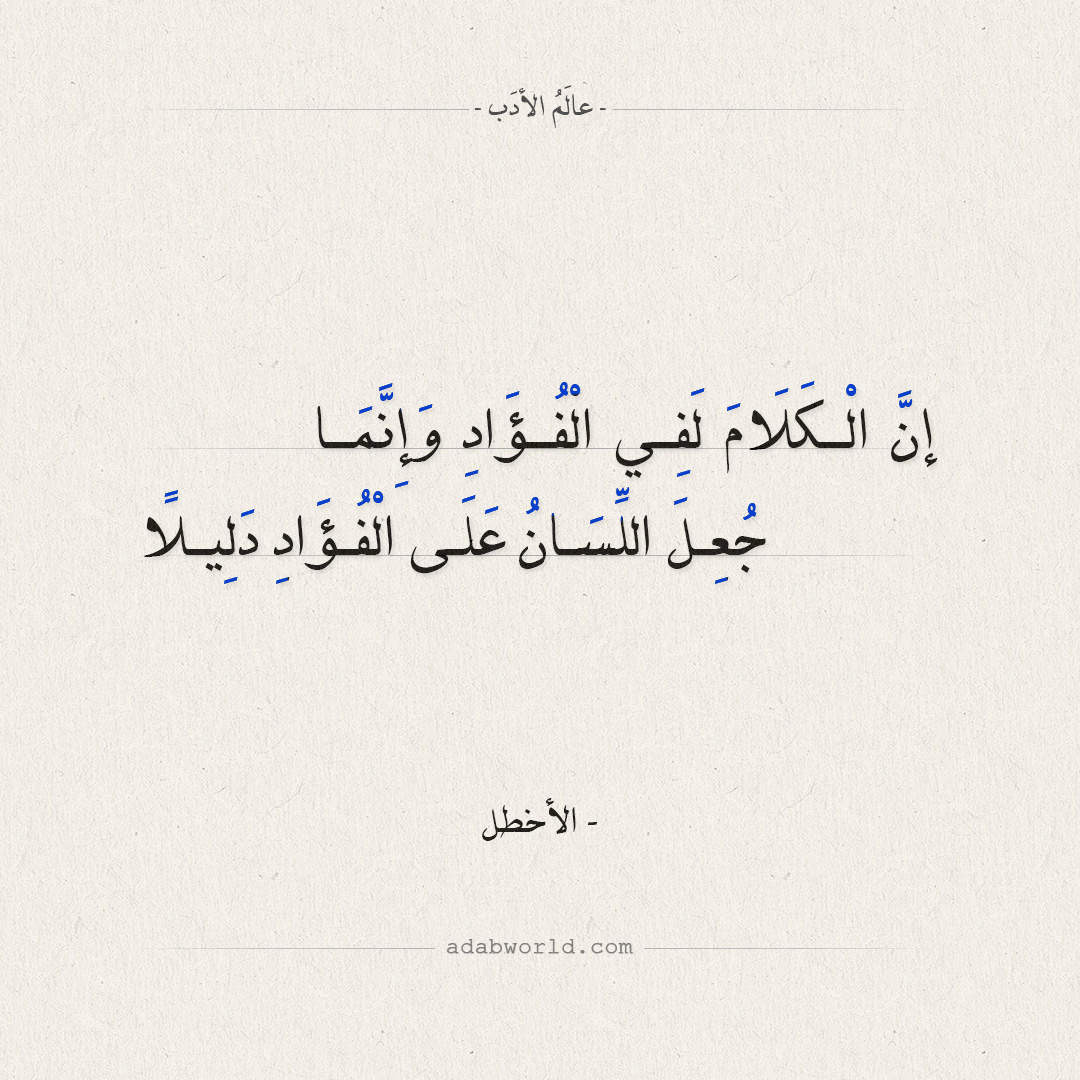 - عالَمُ الأدَب -
إِنَّ الْـكَلَامَ لَفِـي الْفُـؤَادِ وَإِنَّمَـا
جُعِـلَ اللِّسَـانُ عَلَـى الْفُـؤَادِ دَلِيـلًا
- الأخطل
adabworld.com